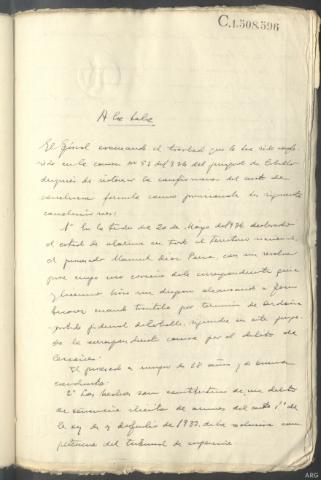 C.1.508.596
A la Sala
El Fiscal evacuando el traslado que le ha sido confe-
rido en la causa nº 52 del 936 del juzgado de
después de la confirmación del auto de
conclusión formula como provisionales las siguientes
conclusiones:
1ª En la tarde del 20 de Mayo del 936 declarado
el estado de alarma en todo el territorio nacional
el procesado Manuel Dias Parra, con un revolver
para cuyo uso carecia de la correspondiente guia
y licencia hizo un disparo alcanzando a
cuando por termino de
partido judicial de siguiendose en este juzga-
do la correspondiente causa por el delito de
lesiones.
El procesado es mayor de 18 años y de buena
conducta.
2ª Los hechos son constitutivos de un delito
de tenencia ilicita de armas del arto 1º de
la ley de 4 de Julio de 1933, de la exclusiva com-
petencia del tribunal de urgencia
ARG